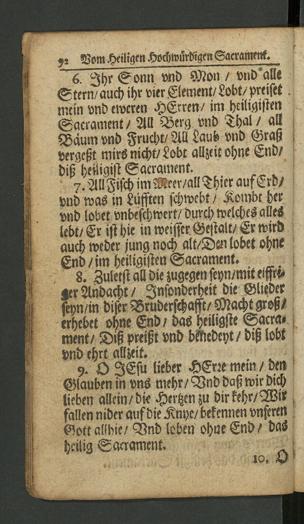 92 Vom Heiligen Hochwürdigen Sacrament.
6. Ihr Sonn vnd Mon / vnd alle
Stern / auch ihr vier Element / Lobt / preiset
mein vnd eweren HErren / im heiligisten
Sacrament / All Berg vnd Thal / all
Bäum vnd Frucht / All Laub vnd Graß
vergeßt mirs nicht / Lobt allzeit ohne End /
diß heiligist Sacrament.
7. All Fisch im Meer / all Thier auf Erd /
vnd was in Lüfften schwebt / Kombt her
vnd lobet vnbeschwert / durch welches alles
lebt / Er ist hie in weisser Gestalt / Er wird
auch weder jung noch alt / Den lobet ohne
End / im heiligisten Sacrament.
8. Zuletst all die zugegen seyn / mit eiffri-
ger Andacht / Insonderheit die Glieder
seyn / in diser Bruderschafft / Macht groß /
erhebet ohne End / das heiligste Sacra-
ment / Diß preißt vnd benedeyt / diß lobt
vnd ehrt allzeit.
9. O JEsu lieber HErre mein / den
Glauben in vns mehr / Vnd daß wir dich
lieben allein / die Hertzen zu dir kehr / Wir
fallen nider auf die Knye / bekennen vnseren
Gott allhie / Vnd loben ohne End / das
heilig Sacrament.
10. O